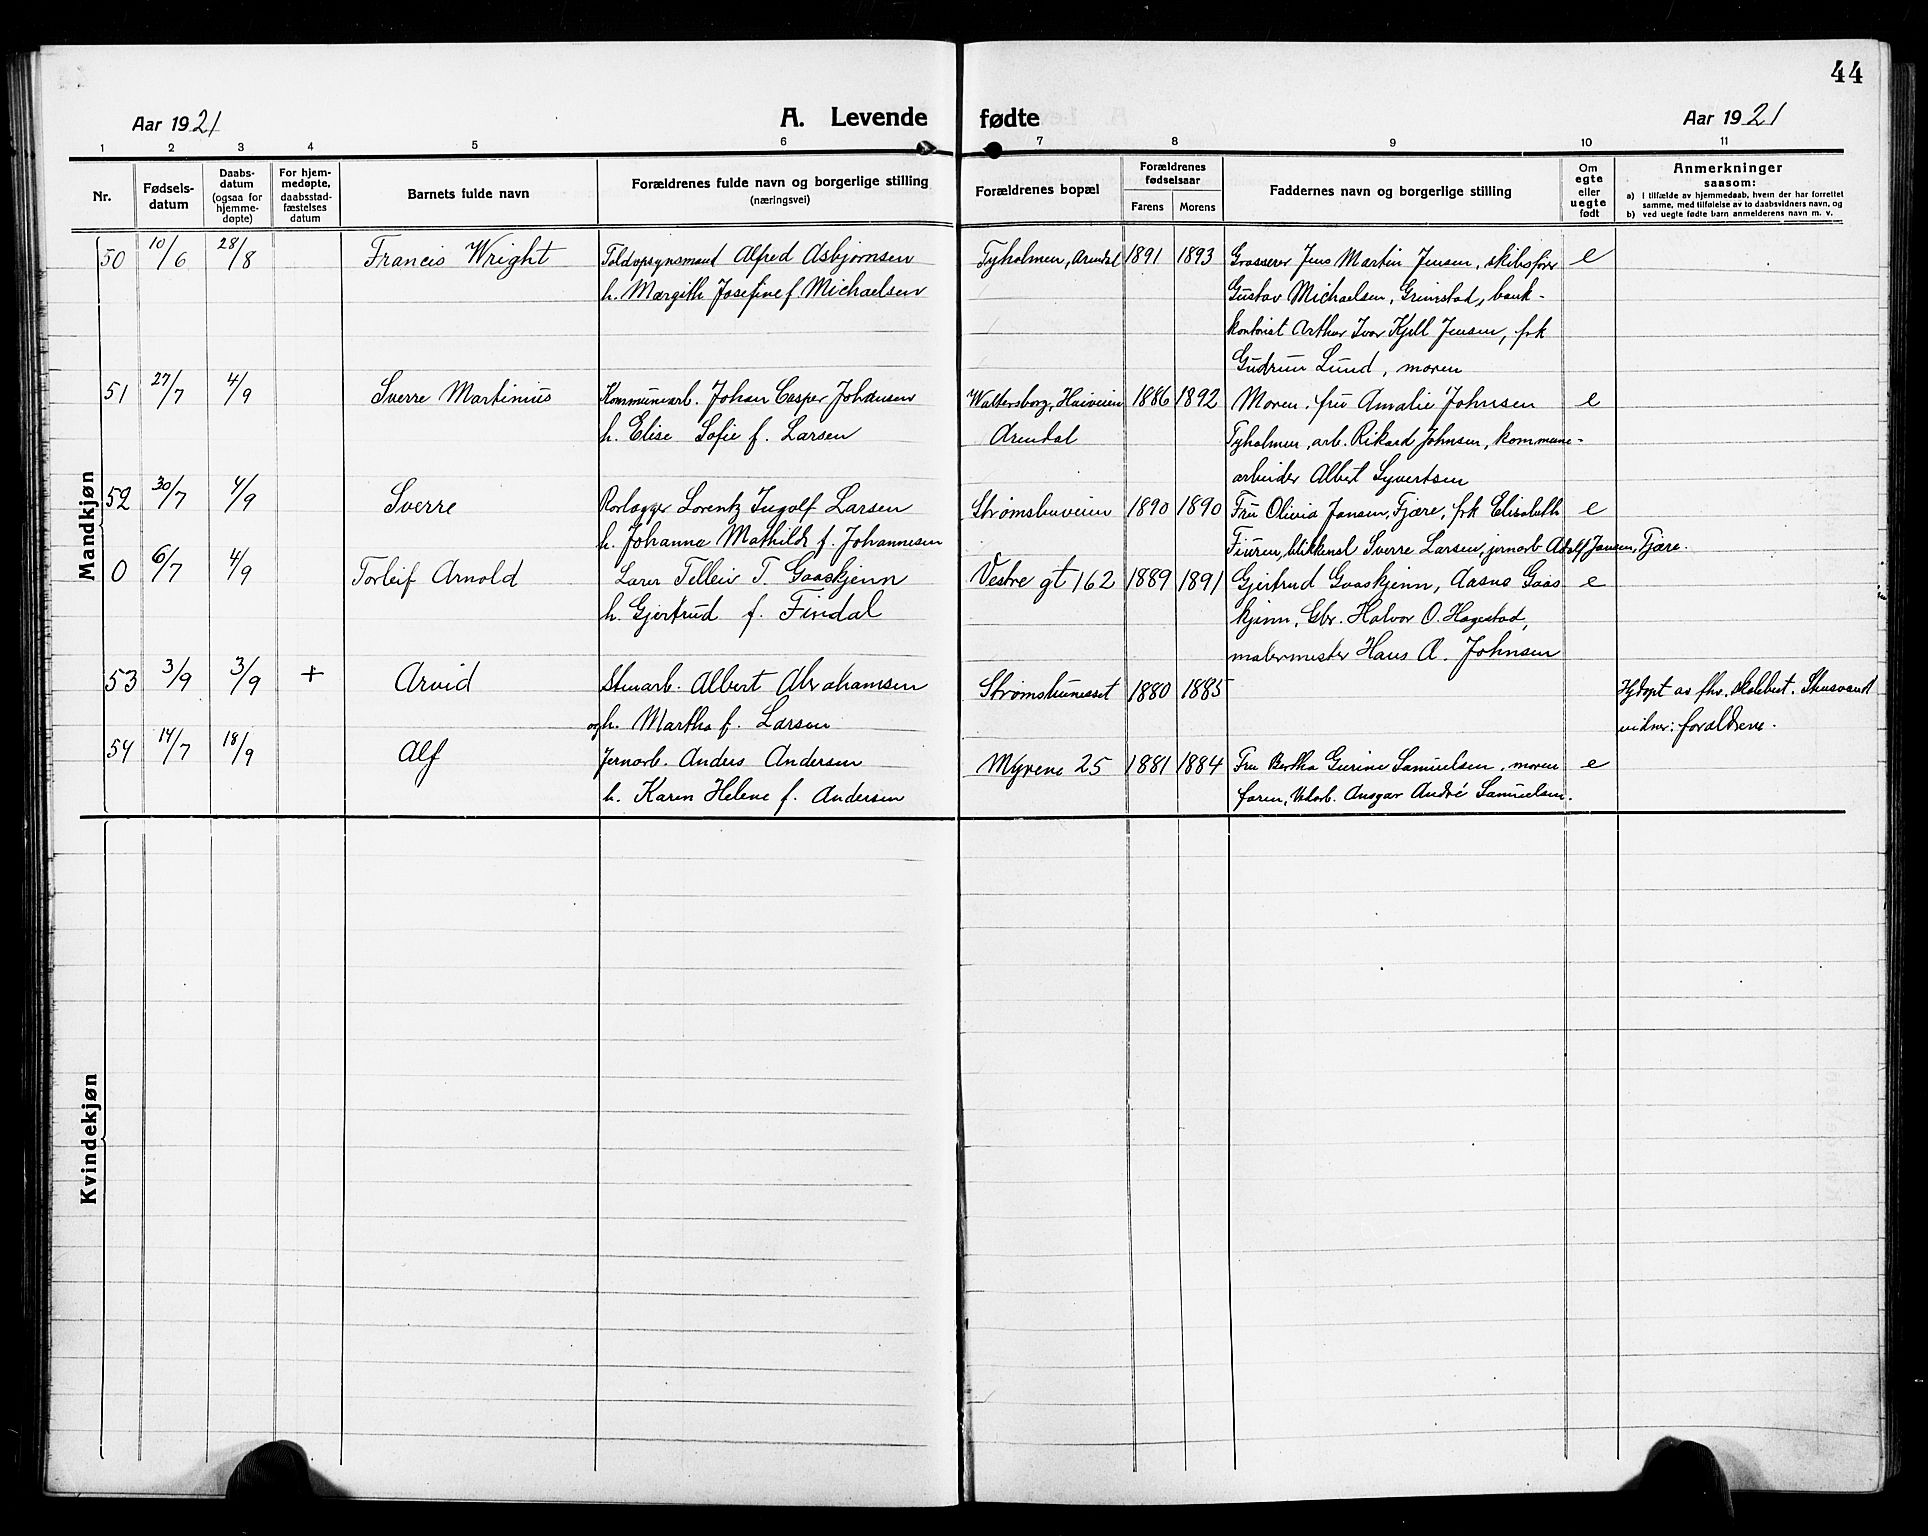 44
Aar 1921 A. Levende fødte Aar 1921
1 2 3 4 5 6 7 8 9 10 11
Nr.
Fødsels-
datum
Daabs-
datum
(ogsaa for
hjemme-
døpte)
For hjem-
medøpte,
daabsstad-
fæstelses
datum
Barnets fulde navn
Forældrenes fulde navn og borgerlige stilling
(næringsvei)
Forældrenes bopæl
Forældrenes
fødselsaar
Farens Morens
Faddernes navn og borgerlige stilling
Om
egte
eller
uegte
født
Anmerkninger
saasom:
a) I tilfælde av hjemmedaab, hvem der har forrettet
samme, med tilføielse av to daabsvidners navn, og
b) ved uegte fødte barn anmelderens navn m. v.
Mandkjøn
50 10/6 28/8 Francis Wright Toldopsynsmand Alfred Asbjørnsen Tyholmen, Arendal 1891 1893 Grosserer Jens Martin Jensen, skibsfører e
h. Margith Josefine f. Michaelsen Gustav Michaelsen, Grimstad, bank-
kontorist Arthur Ivar Kjell Jensen, frk
Gudrun Lund, moren
51 27/7 4/9 Sverre Martinius Kommunearb. Johan Casper Johansen Waltersborg, Haiveien 1886 1892 Moren, fru Amalie Johnsen e
h. Elise Sofie f. Larsen Arendal Tyholmen, arb. Rikard Johnsen, kommune-
arbeider Albert Syvertsen
52 30/7 4/9 Sverre Rørlægger Lorentz Ingolf Larsen Strømsbuveien 1890 1890 Fru Olivia Jansen, Fjære, frk Elisabeth e
h. Johanne Mathilde f. Johannesen Fiuren, blikkensl Sverre Larsen, jernarb Adolf Jansen, Fjære.
0 6/7 4/9 Torleif Arnold Lærer Telleiv T. Gaaskjenn Vestre gt 162 1889 1891 Gjertrud Gaaskjenn, Aasne Gaas e
h. Gjertrud f. Findal kjinn, Gbr. Halvor O. Hagestad,
malermester Hans A. Johnsen
53 3/9 3/9 + Arvid Stenarb. Albert Abrahamsen Strømsbunesset 1880 1885 Hjdøpt av fhv. skolebest. Stensvand
og h. Martha f. Larsen vidner: forældrene.
54 14/7 18/9 Alf Jernarb. Anders Andersen Myrene 25 1881 1884 Fru Bertha Gurine Samuelsen, moren e
h. Karen Helene f. Andersen faren, Vedarb. Ansgar André Samuelsen.
Kvindekjøn